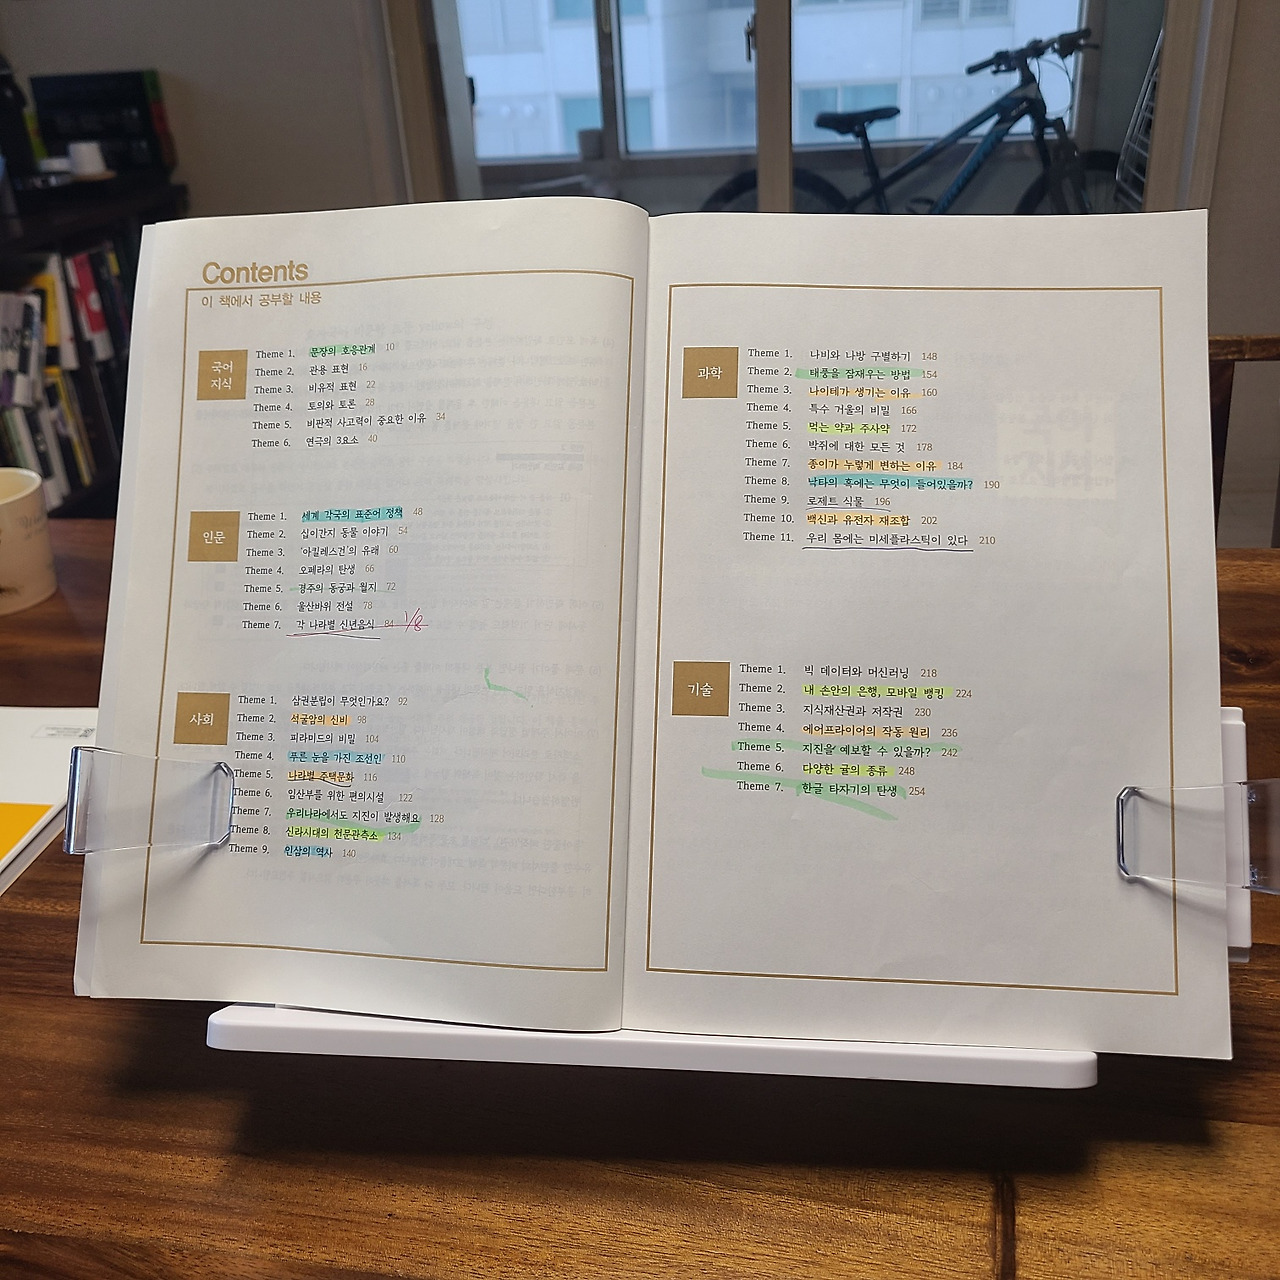 Contents
이 책에서 공부할 내용
국어
지식
Theme 1. 문장의 호응관계 10
Theme 2. 관용 표현 16
Theme 3. 비유적 표현 22
Theme 4. 토의와 토론 28
Theme 5. 비판적 사고력이 중요한 이유 34
Theme 6. 연극의 3요소 40
인문
Theme 1. 세계 각국의 표준어 정책 48
Theme 2. 십이간지 동물 이야기 54
Theme 3. '아킬레스건'의 유래 60
Theme 4. 오페라의 탄생 66
Theme 5. 경주의 동궁과 월지 72
Theme 6. 울산바위 전설 78
Theme 7. 각 나라별 신년음식 84 1/8
사회
Theme 1. 삼권분립이 무엇인가요? 92
Theme 2. 석굴암의 신비 98
Theme 3. 피라미드의 비밀 104
Theme 4. 푸른 눈을 가진 조선인 110
Theme 5. 나라별 주택문화 116
Theme 6. 임산부를 위한 편의시설 122
Theme 7. 우리나라에서도 지진이 발생해요 128
Theme 8. 신라시대의 천문관측소 134
Theme 9. 인삼의 역사 140
과학
Theme 1. 나비와 나방 구별하기 148
Theme 2. 태풍을 잠재우는 방법 154
Theme 3. 나이테가 생기는 이유 160
Theme 4. 특수 거울의 비밀 166
Theme 5. 먹는 약과 주사약 172
Theme 6. 박쥐에 대한 모든 것 178
Theme 7. 종이가 누렇게 변하는 이유 184
Theme 8. 낙타의 혹에는 무엇이 들어있을까? 190
Theme 9. 로제트 식물 196
Theme 10. 백신과 유전자 재조합 202
Theme 11. 우리 몸에는 미세플라스틱이 있다 210
기술
Theme 1. 빅 데이터와 머신러닝 218
Theme 2. 내 손안의 은행, 모바일 뱅킹 224
Theme 3. 지식재산권과 저작권 230
Theme 4. 에어프라이어의 작동 원리 236
Theme 5. 지진을 예보할 수 있을까? 242
Theme 6. 다양한 귤의 종류 248
Theme 7. 한글 타자기의 탄생 254